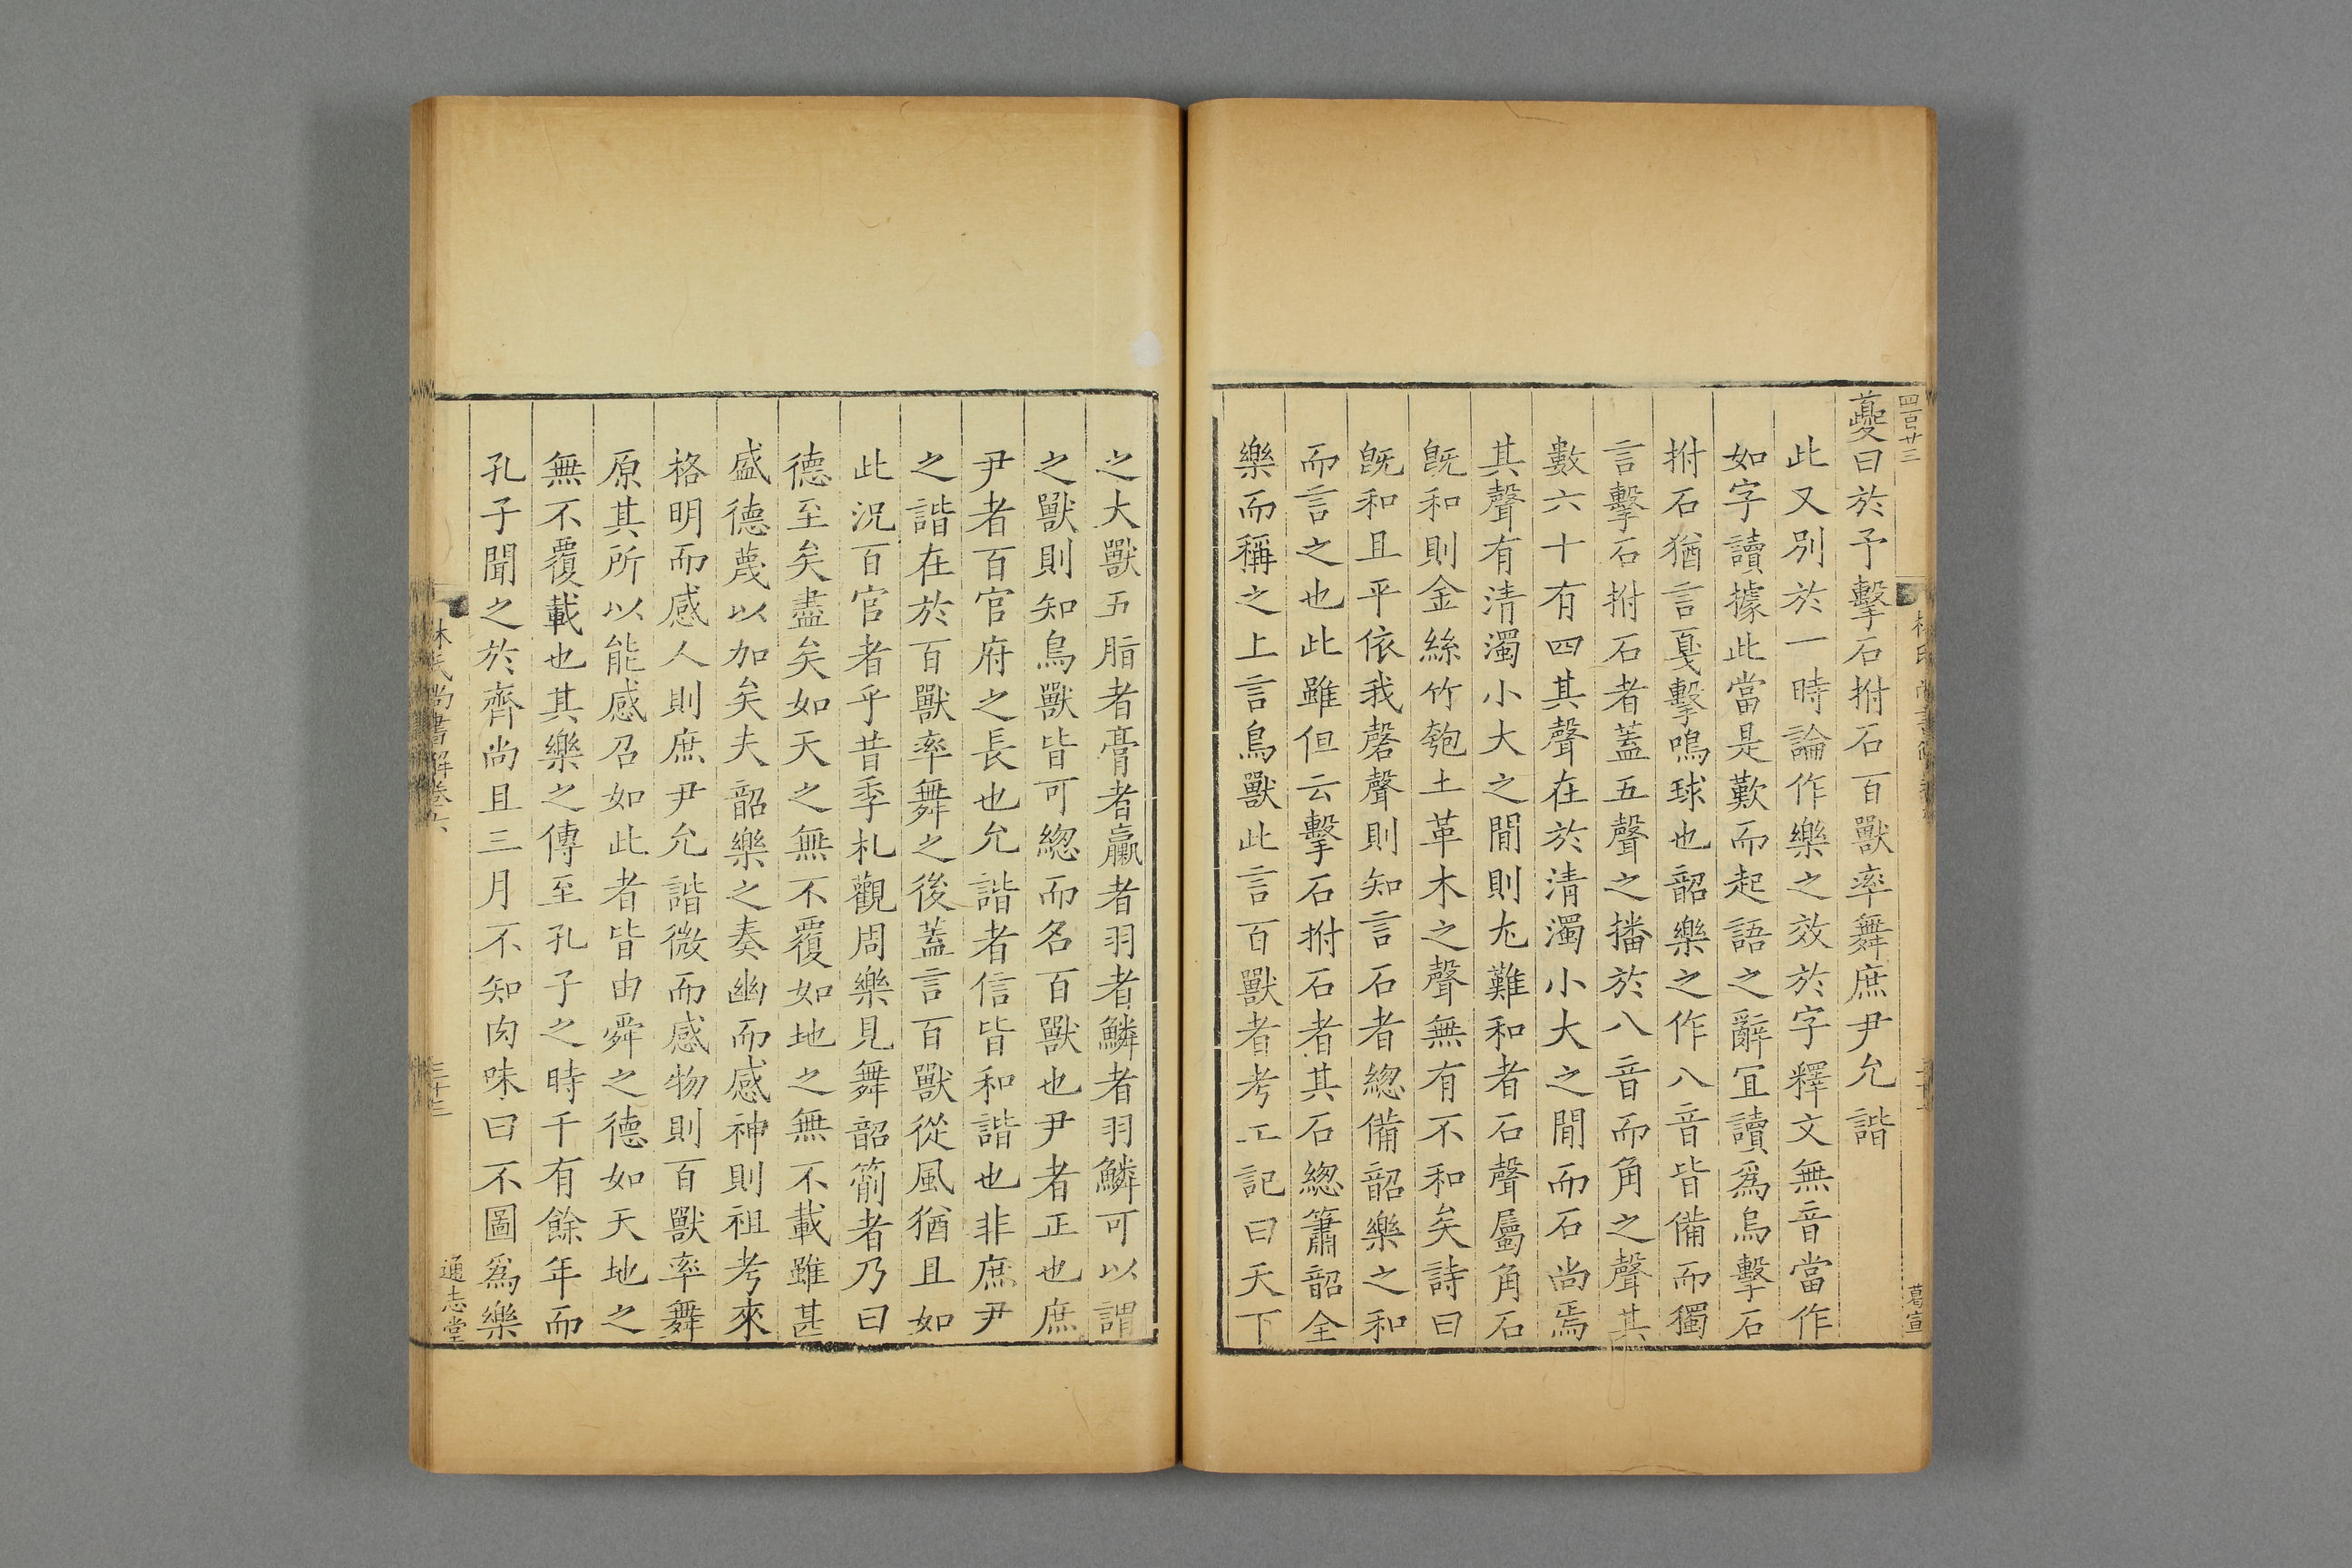 四百廿三
葛宣
夔曰於予擊石拊石百獸率舞庶尹允諧
此又別於一時論作樂之效於字釋文無音當作
如字讀據此當是歎而起語之辭宜讀爲烏擊石
拊石猶言戛擊鳴球也韶樂之作八音皆備而獨
言擊石拊石者蓋五聲之播於八音而角之聲其
數六十有四其聲在於清濁小大之間而石尚焉
其聲有清濁小大之間則尤難和者石聲屬角石
旣和則金絲竹匏土革木之聲無有不和矣詩曰
旣和且平依我磬聲則知言石者緫備韶樂之和
而言之也此雖但云擊石拊石者其石緫簫韶全
樂而稱之上言鳥獸此言百獸者考工記曰天下
之大獸五脂者膏者臝者羽者鱗者羽鱗可以謂
之獸則知鳥獸皆可緫而名百獸也尹者正也庶
尹者百官府之長也允諧者信皆和諧也非庶尹
之諧在於百獸率舞之後蓋言百獸從風猶且如
此況百官者乎昔季札觀周樂見舞韶箾者乃曰
德至矣盡矣如天之無不覆如地之無不載雖甚
盛德蔑以加矣夫韶樂之奏幽而感神則祖考來
格明而感人則庶尹允諧微而感物則百獸率舞
原其所以能感召如此者皆由舜之德如天地之
無不覆載也其樂之傳至孔子之時千有餘年而
孔子聞之於齊尚且三月不知肉味曰不圖爲樂
林氏尚書解卷六
三十三
通志堂